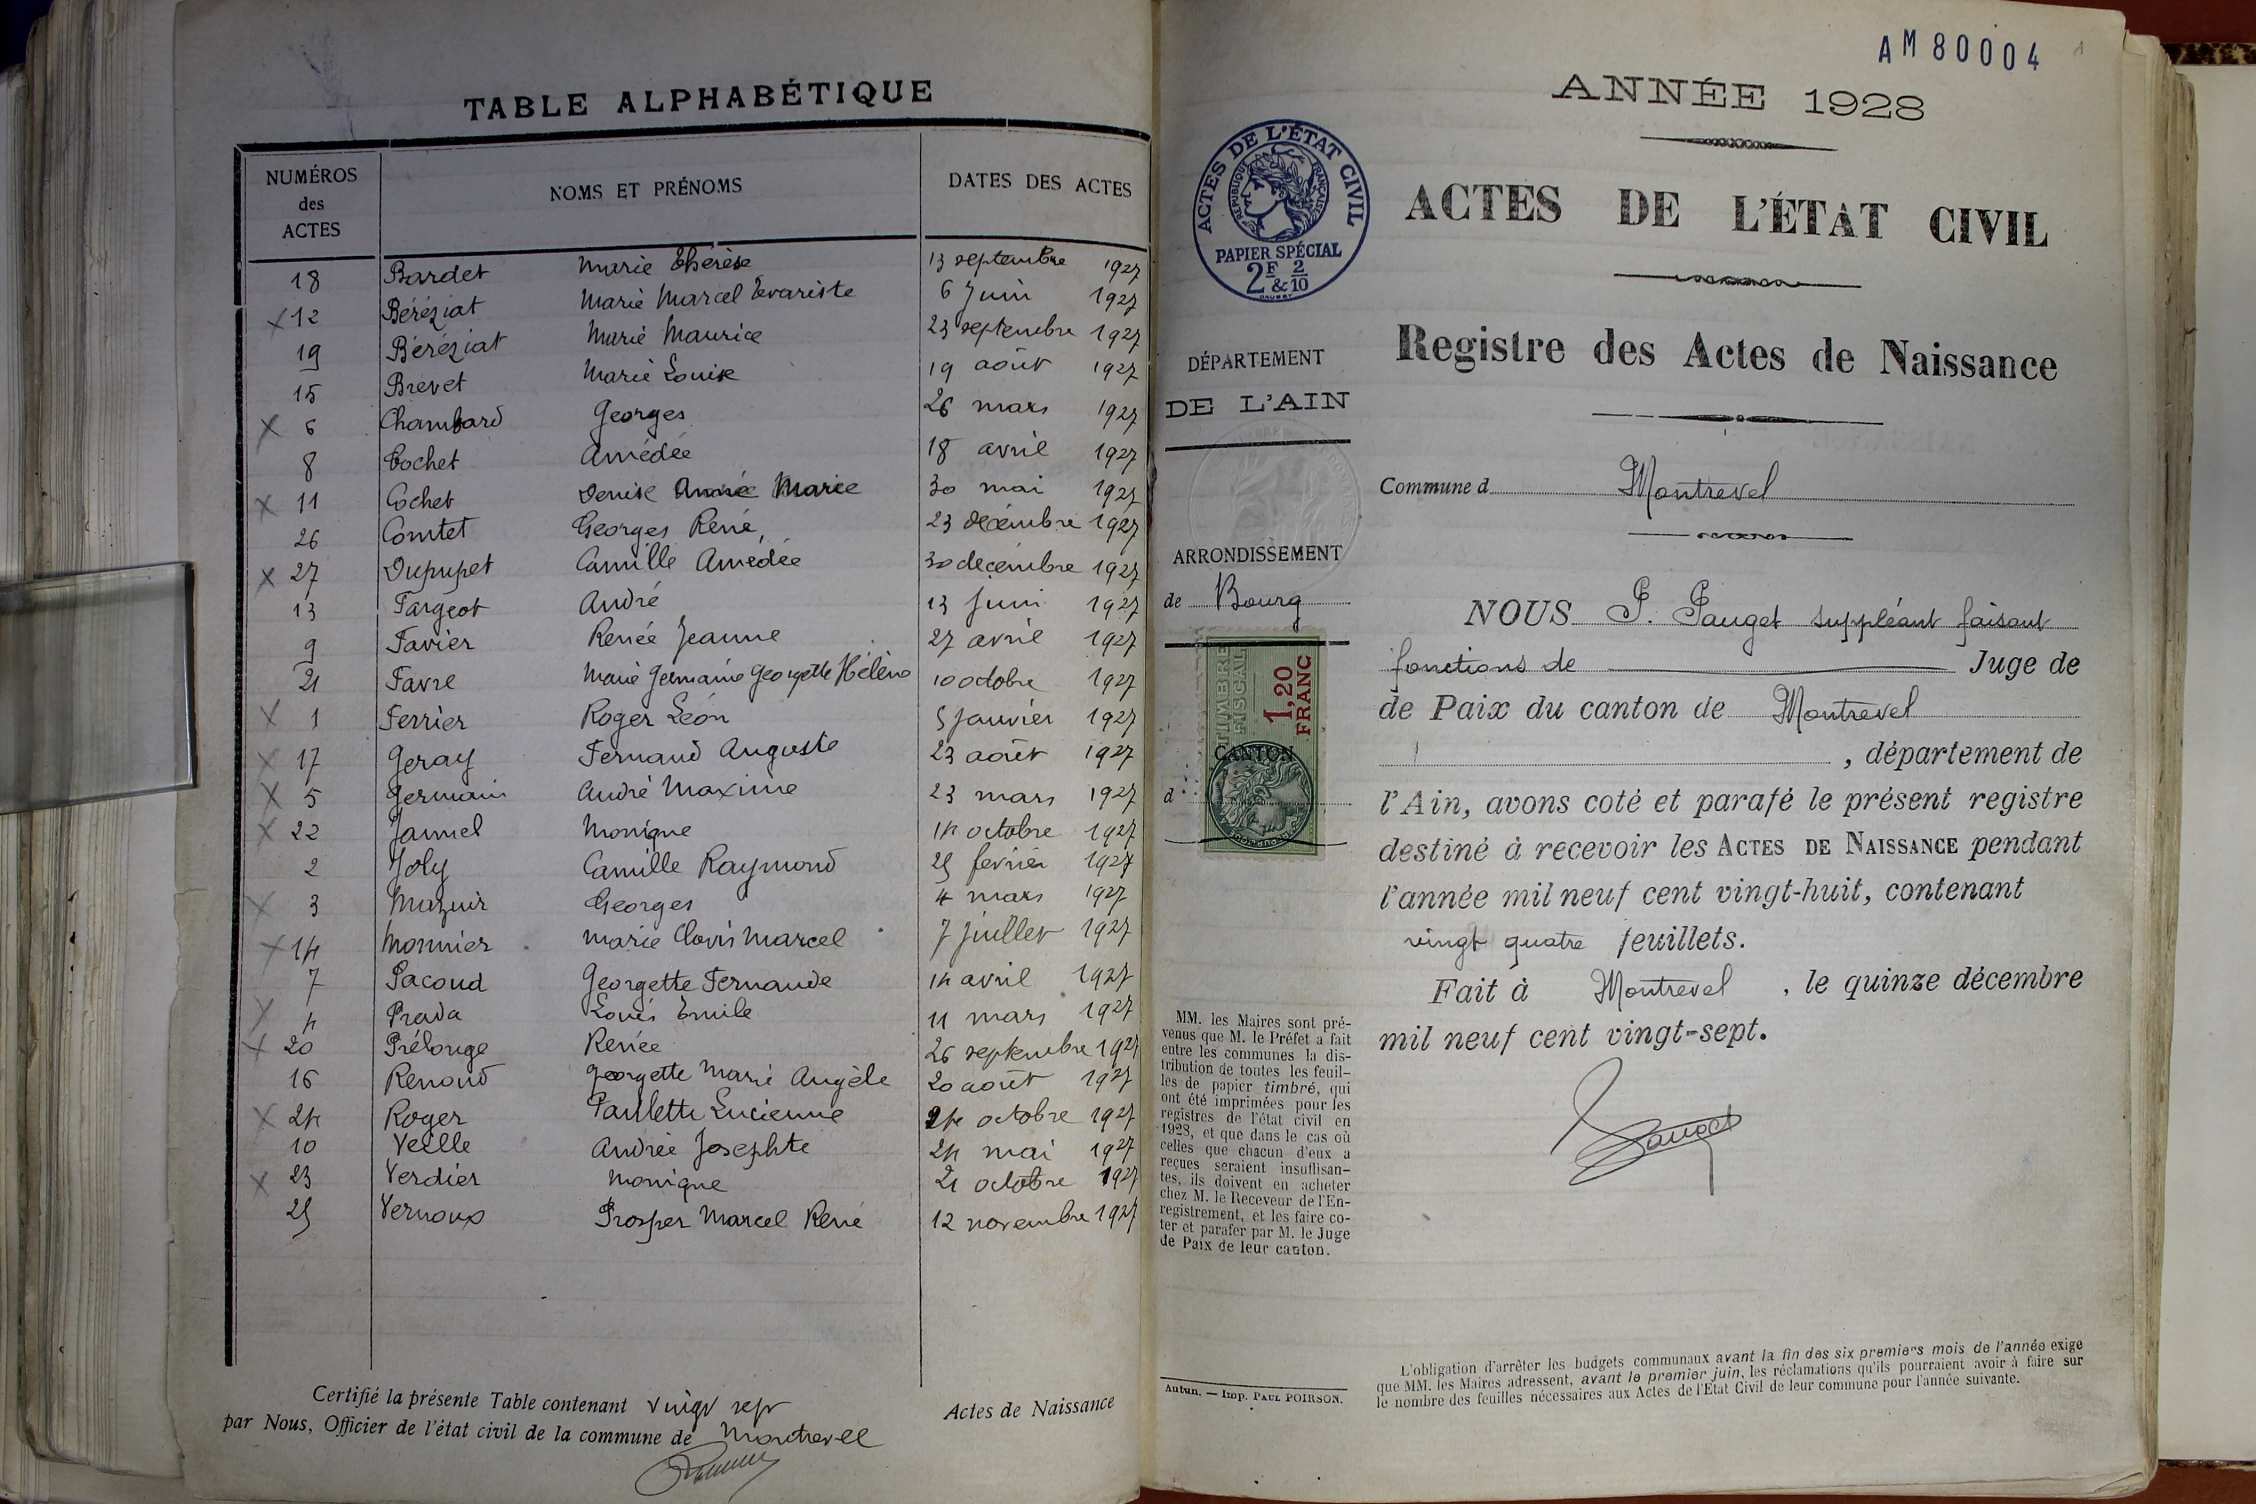 TABLE ALPHABÉTIQUE
NUMÉROS des ACTES NOMS ET PRÉNOMS DATES DES ACTES
18 Bardet Marie Thérèse 13 septembre 1927
x 12 Béréziat Marie Marcel Evariste 6 Juin 1927
19 Béréziat Marie Maurice 23 septembre 1927
15 Brevet Marie Louise 19 août 1927
x 6 Chambard Georges 26 mars 1927
8 Cochet Amédée 18 avril 1927
x 11 Cochet Denise Année Marie 30 mai 1927
26 Comtet Georges René 23 décembre 1927
x 27 Dupupet Camille Amédée 30 décembre 1927
13 Fargeot André 13 Juin 1927
9 Favier Renée Jeanne 27 avril 1927
21 Favre Marie Germaine Georgette Hélène 10 octobre 1927
x 1 Ferrier Roger Léon 5 Janvier 1927
x 17 Geray Fernand Auguste 23 août 1927
x 5 Germain André Maxime 23 mars 1927
x 22 Jannel Monique 14 octobre 1927
2 Joly Camille Raymond 25 février 1927
x 3 Mazuir Georges 4 mars 1927
x 14 Monnier Marie Clovis Marcel 7 Juillet 1927
7 Pacoud Georgette Fernande 14 avril 1927
x 4 Prada Louis Emile 11 mars 1927
x 20 Prélonge Renée 26 septembre 1927
16 Renoud Georgette Marie Angèle 20 août 1927
x 24 Roger Paulette Lucienne 24 octobre 1927
10 Veille Andrée Josephte 24 mai 1927
x 23 Verdier Monique 21 octobre 1927
25 Vernoux Prosper Marcel René 12 novembre 1927
Certifié la présente Table contenant vingt sept Actes de Naissance
par Nous, Officier de l'état civil de la commune de Montrevel
AM 80004
ANNÉE 1928
ACTES DE L'ÉTAT CIVIL
RÉPUBLIQUE FRANÇAISE
PAPIER SPÉCIAL
2F & 2/10
ACTES DE L'ÉTAT CIVIL
Registre des Actes de Naissance
DÉPARTEMENT
DE L'AIN
Commune d Montrevel
ARRONDISSEMENT
de Bourg
TIMBRE FISCAL
1,20 FRANC
CANTON
d
NOUS P. Pauget suppléant faisant
fonctions de Juge de
de Paix du canton de Montrevel
, département de
l'Ain, avons coté et parafé le présent registre
destiné à recevoir les ACTES DE NAISSANCE pendant
l'année mil neuf cent vingt-huit, contenant
vingt quatre feuillets.
Fait à Montrevel , le quinze décembre
mil neuf cent vingt-sept.
Pauget
MM. les Maires sont pré-
venus que M. le Préfet a fait
entre les communes la dis-
tribution de toutes les feuil-
les de papier timbré, qui
ont été imprimées pour les
registres de l'état civil en
1928, et que dans le cas où
celles que chacun d'eux a
reçues seraient insuffisan-
tes, ils doivent en acheter
chez M. le Receveur de l'En-
registrement, et les faire co-
ter et parafer par M. le Juge
de Paix de leur canton.
Autun. — Imp. PAUL POIRSON.
L'obligation d'arrêter les budgets communaux avant la fin des six premiers mois de l'année exige
que MM. les Maires adressent, avant le premier juin, les réclamations qu'ils pourraient avoir à faire sur
le nombre des feuilles nécessaires aux Actes de l'Etat Civil de leur commune pour l'année suivante.